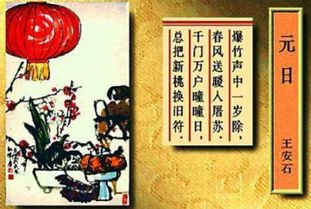 元日
王安石
爆竹声中一岁除，
春风送暖入屠苏．
千门万户曈曈日，
总把新桃换旧符．